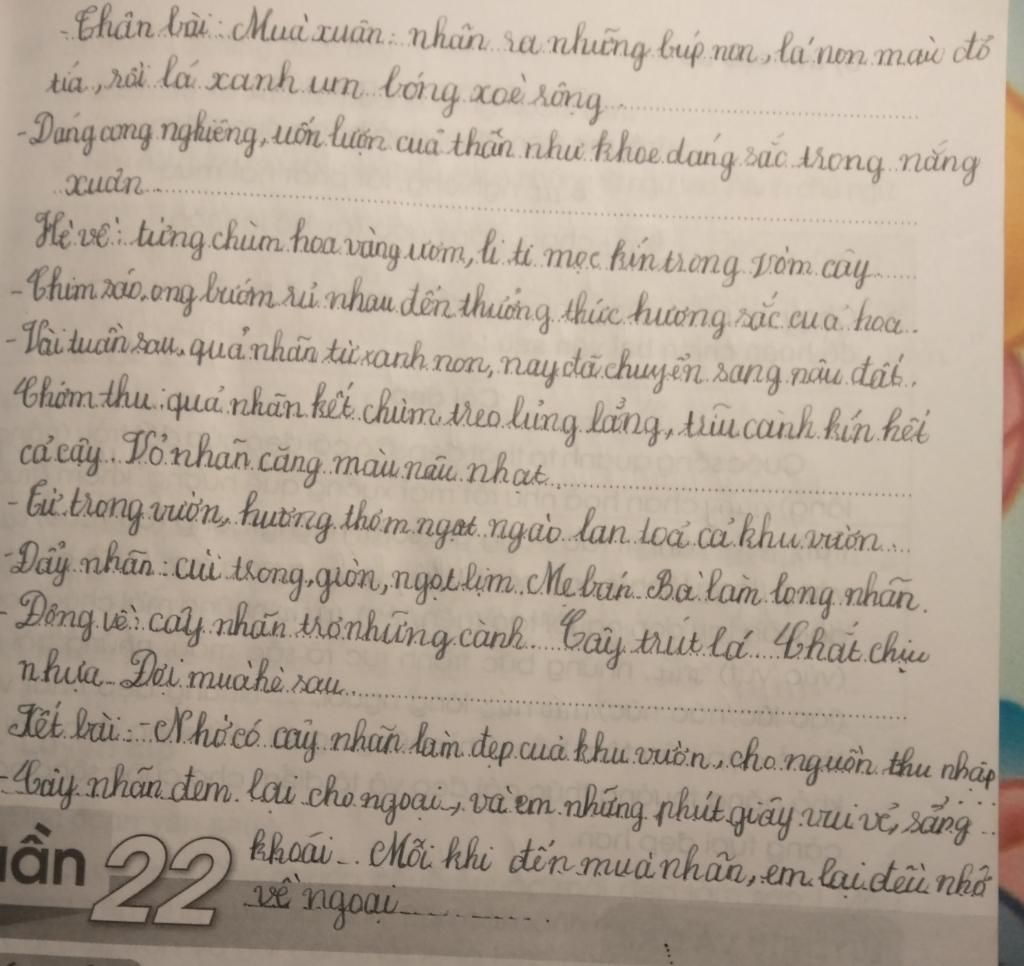 - Thân bài: Mùa xuân: nhãn ra những búp non, lá non màu đỏ
tía, rồi lá xanh um bóng xoè rộng
- Dáng cong nghiêng, uốn lượn của thân như khoe dáng sắc trong nắng
xuân
Hè về: từng chùm hoa vàng ươm, li ti mọc kín trong vòm cây
- Chim sáo, ong bướm rủ nhau đến thưởng thức hương sắc của hoa.
- Vài tuần sau, quả nhãn từ xanh non, nay đã chuyển sang nâu đất.
Chớm thu: quả nhãn kết chùm treo lủng lẳng, trĩu cành kín hết
cả cây. Vỏ nhãn căng màu nâu nhạt
- Từ trong vườn, hương thơm ngạt ngào lan toả cả khu vườn
- Dẩy nhãn: cùi trong, giòn, ngọt lịm. Mẹ bán. Bà làm long nhãn.
- Đông về: cây nhãn trơ những cành... Cây trút lá. Chắt chịu
nhựa. Đợi mùa hè sau
Kết bài: - Nhờ có cây nhãn làm đẹp của khu vườn, cho nguồn thu nhập
- Cây nhãn đem lại cho ngoại, và em những phút giây vui vẻ, sảng
khoái... Mỗi khi đến mùa nhãn, em lại đều nhớ
về ngoại
uần 22